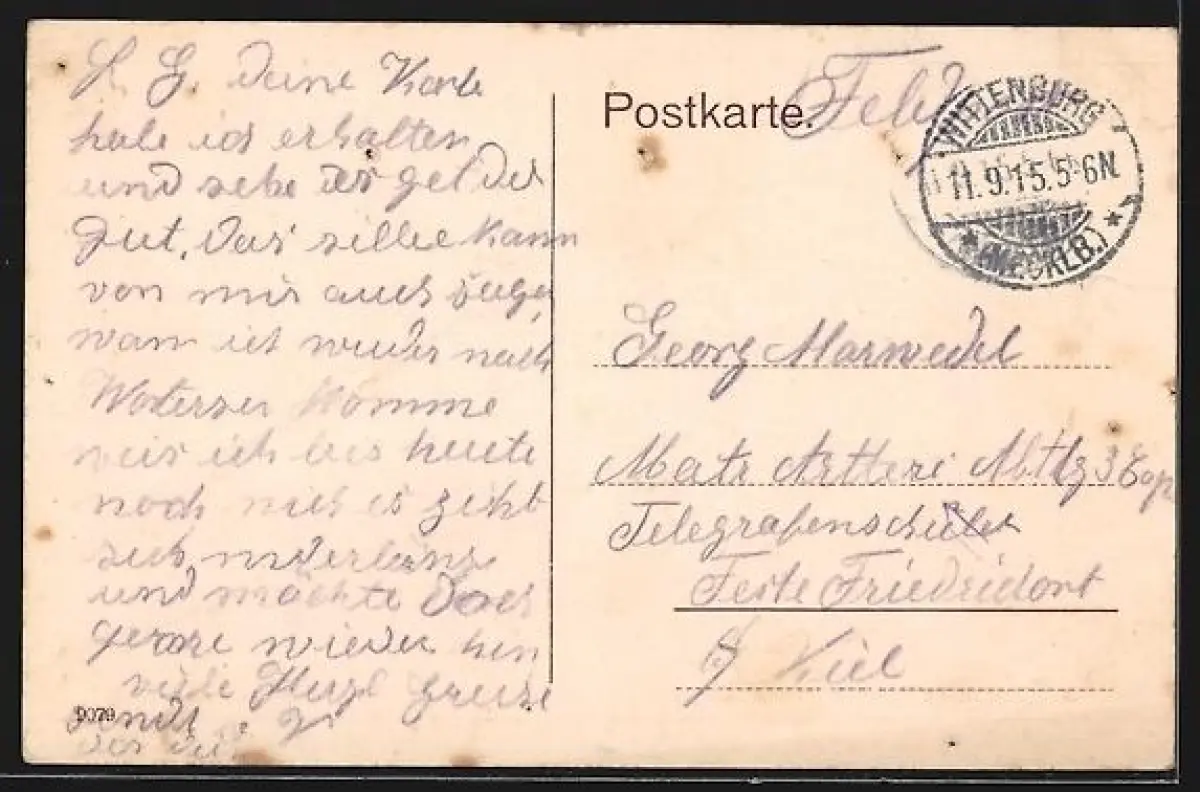 L. G. Deine Karte
habe ich erhalten
und sehe es geht dir
gut, Das selbe kann
von mir auch
wann ich wieder nach
Woterser komme
weis ich bis heute
noch nich es zieht
sich in die länge
und möchte doch
gerne wieder hin
viele Herzl Grüse
sendt
9079
Postkarte.
Feld
WITTENBURG
11.9.15.5-6N.
* (MECKLB.) *
Georg Marwedel
Matr Artteri Abtlg 3 Cop
Telegrafenschule
Feste Friedrichort
b/ Kiel